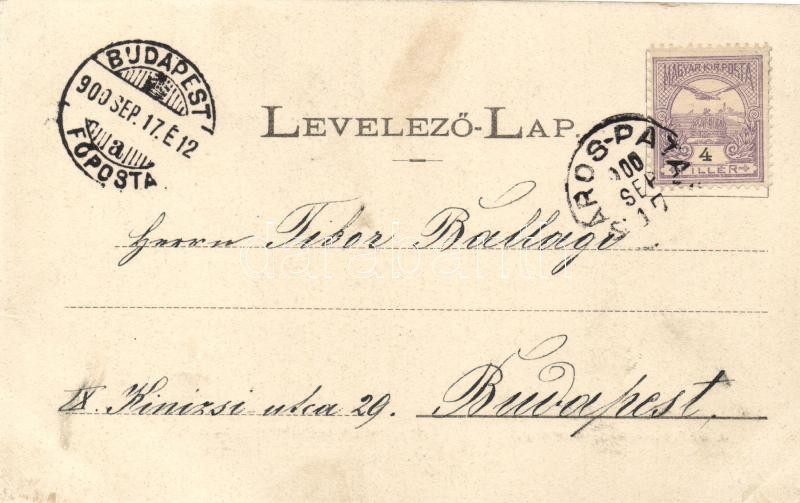 BUDAPEST
900 SEP. 17. É 12
a
FŐPOSTA
LEVELEZŐ-LAP.
MAGYAR KIR. POSTA
4
FILLÉR
SÁROS-PATA
900
SEP
17
Herrn Tibor Ballagi
IX. Kinizsi utca 29. Budapest.
darabanth